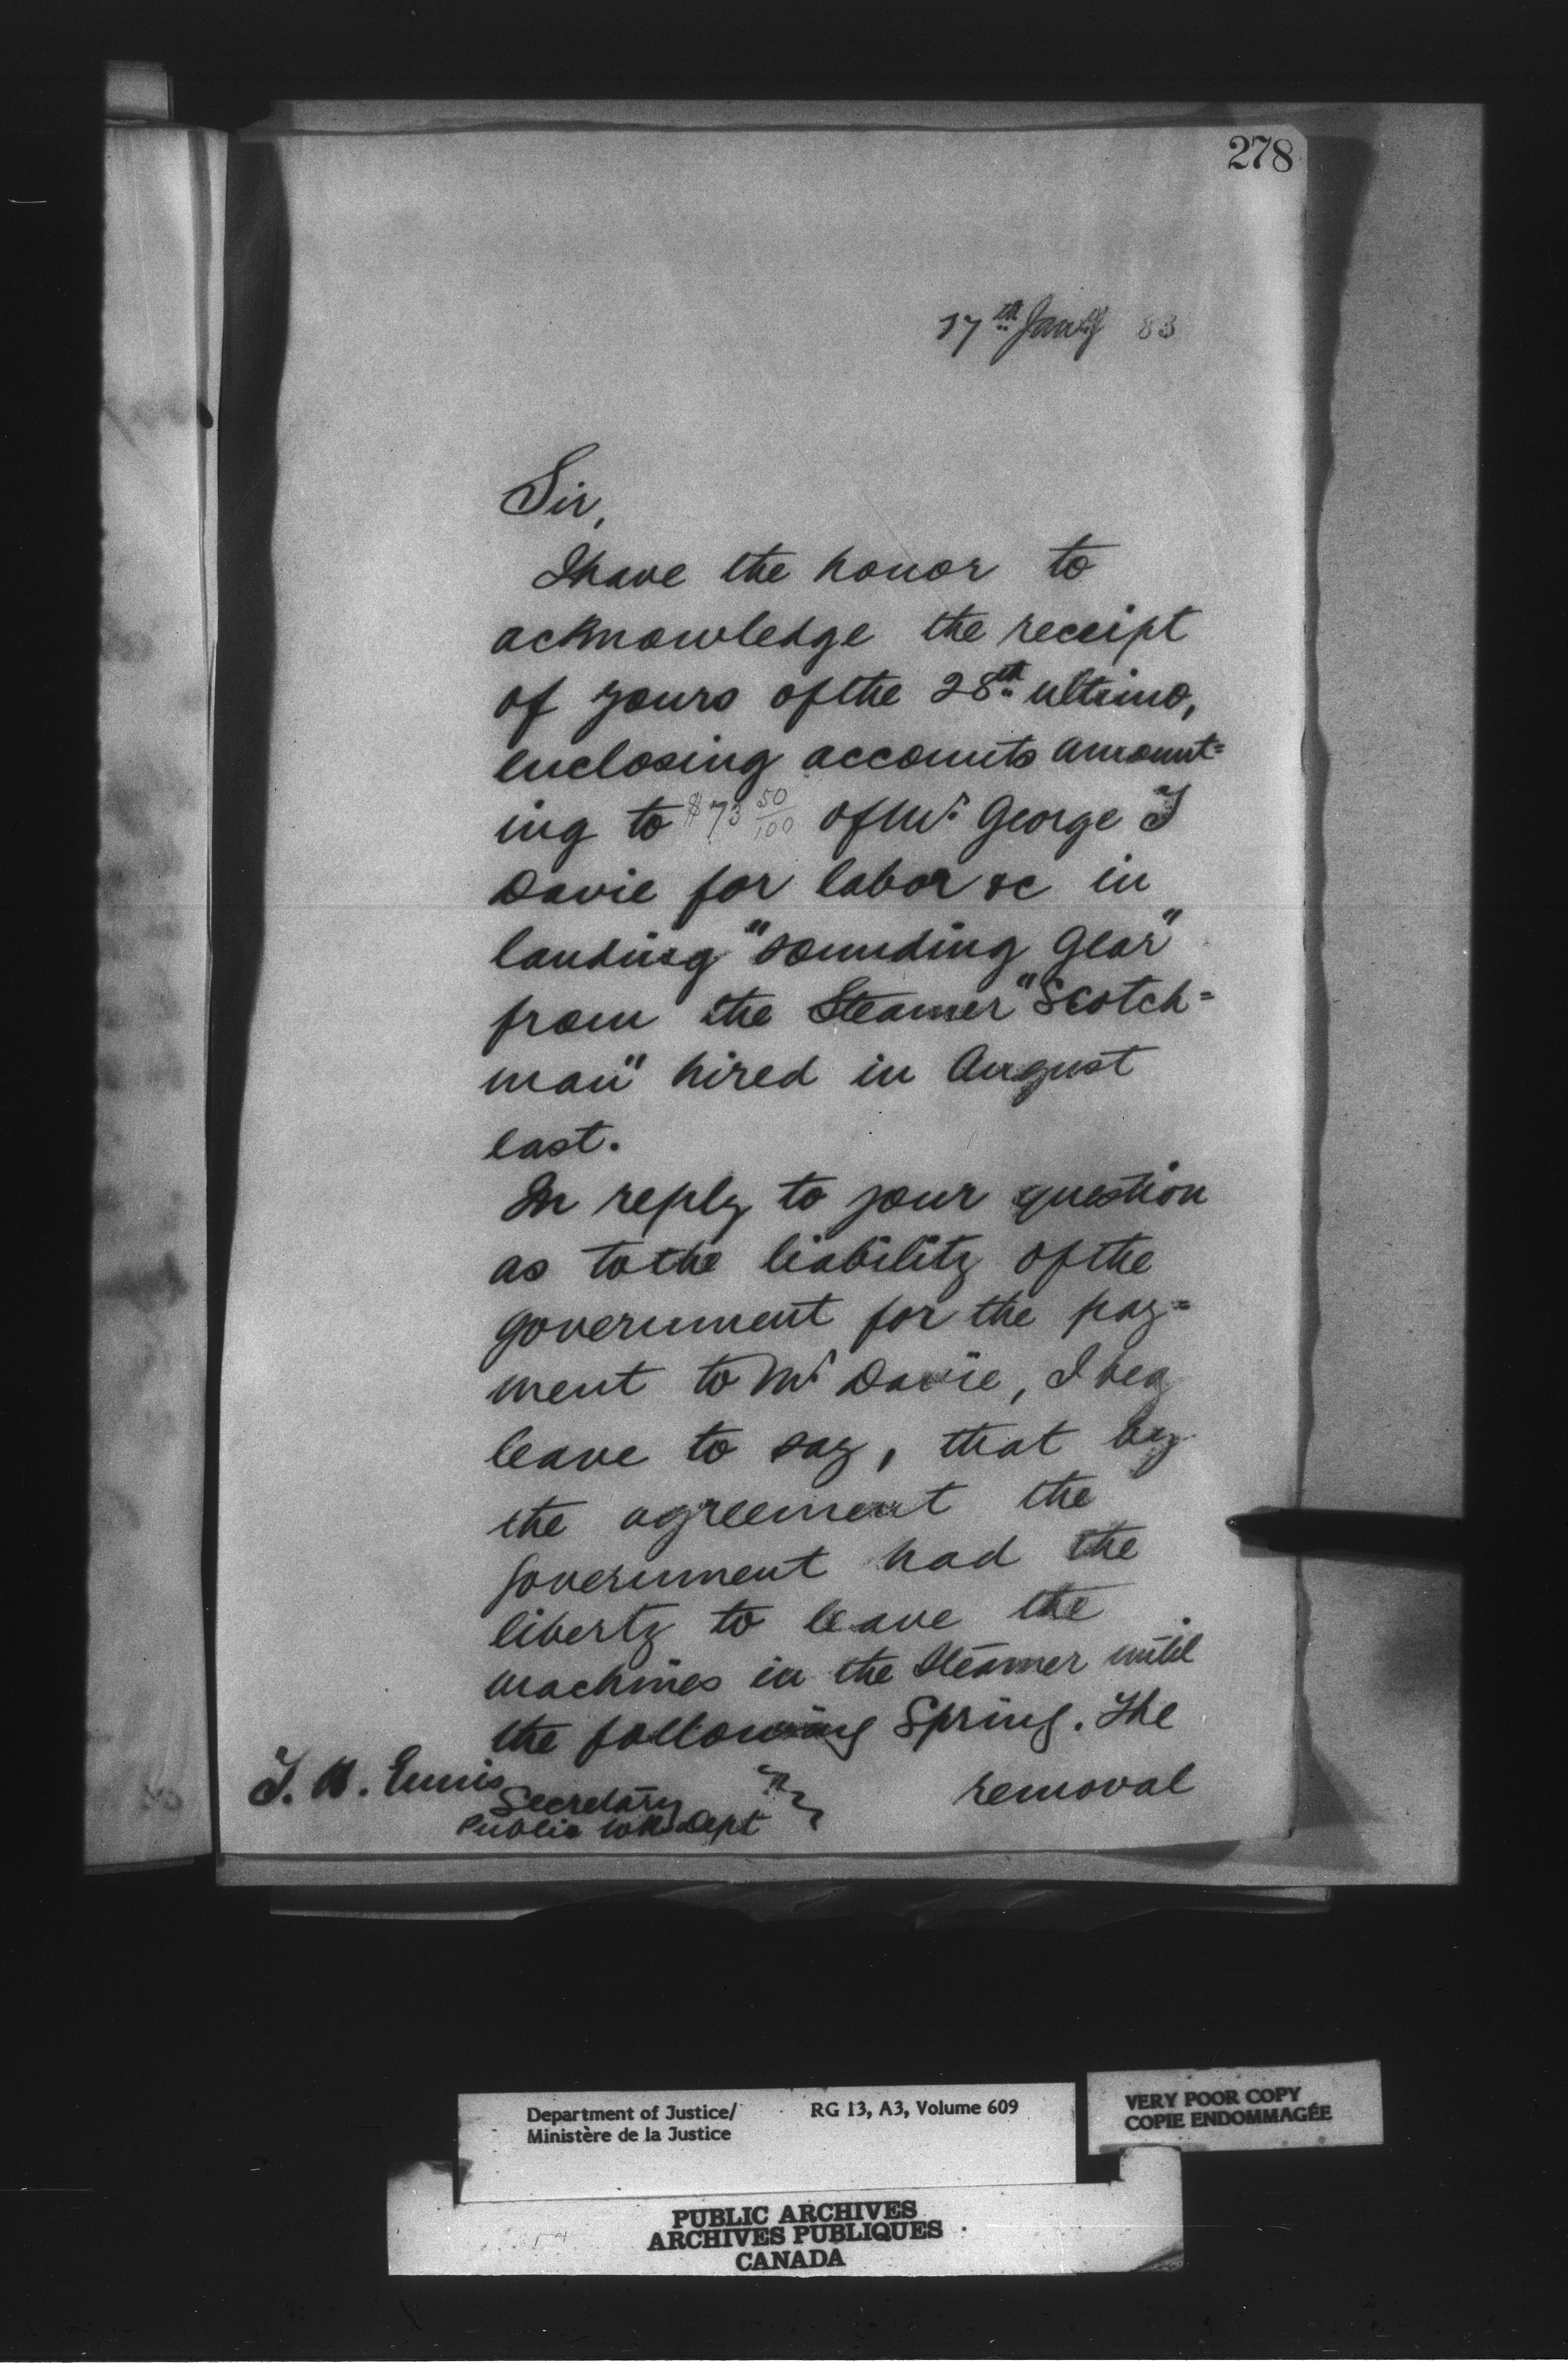 278
17th Jany 83
Sir,
I have the honor to
acknowledge the receipt
of yours of the 28th ultimo,
enclosing accounts amount=
ing to $73 50/100 of Mr George T
Davie for labor &c in
landing "sounding gear"
from the Steamer "Scotch=
man" hired in August
last.
In reply to your question
as to the liability of the
government for the pay=
ment to Mr Davie, I beg
leave to say, that by
the agreement the
government had the
liberty to leave the
machines in the Steamer until
the following Spring. The
removal
Ennis
Secretary
Public Wks Dept
Department of Justice/
Ministère de la Justice
RG 13, A3, Volume 609
VERY POOR COPY
COPIE ENDOMMAGÉE
PUBLIC ARCHIVES
ARCHIVES PUBLIQUES
CANADA